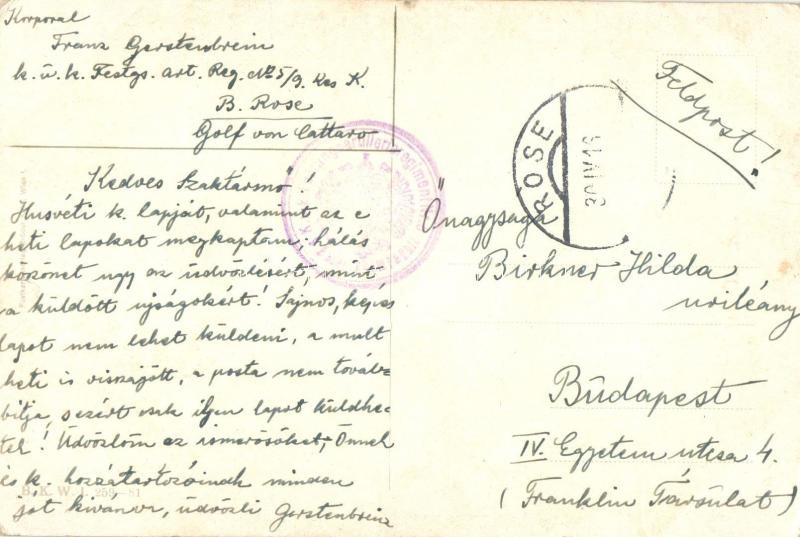 Korporal
Franz Gerstenbrein
k. u. k. Festgs. Art. Reg. No 5/9. Res K.
B. Rose
Golf von Cattaro
Kedves Szaktársnő!
Husvéti k. lapját, valamint az e
heti lapokat megkaptam; hálás
köszönet ugy az üdvözlésért, mint
a küldött ujságokért! Sajnos, képes
lapot nem lehet küldeni, a mult
heti is visszajött, a posta nem továb-
bitja, s ezért csak ilyen lapot küldhe-
tek! Üdvözlöm az ismerősöket, Önnek
és k. hozzátartozóinak minden
jót kivánva, üdvözli Gerstenbrein
B. K. W. I. 259-81
Feldpost!
ROSE
30 IV 16
Őnagysága
Birkner Hilda
urileány
Budapest
IV. Egyetem utcza 4.
(Franklin Társulat)